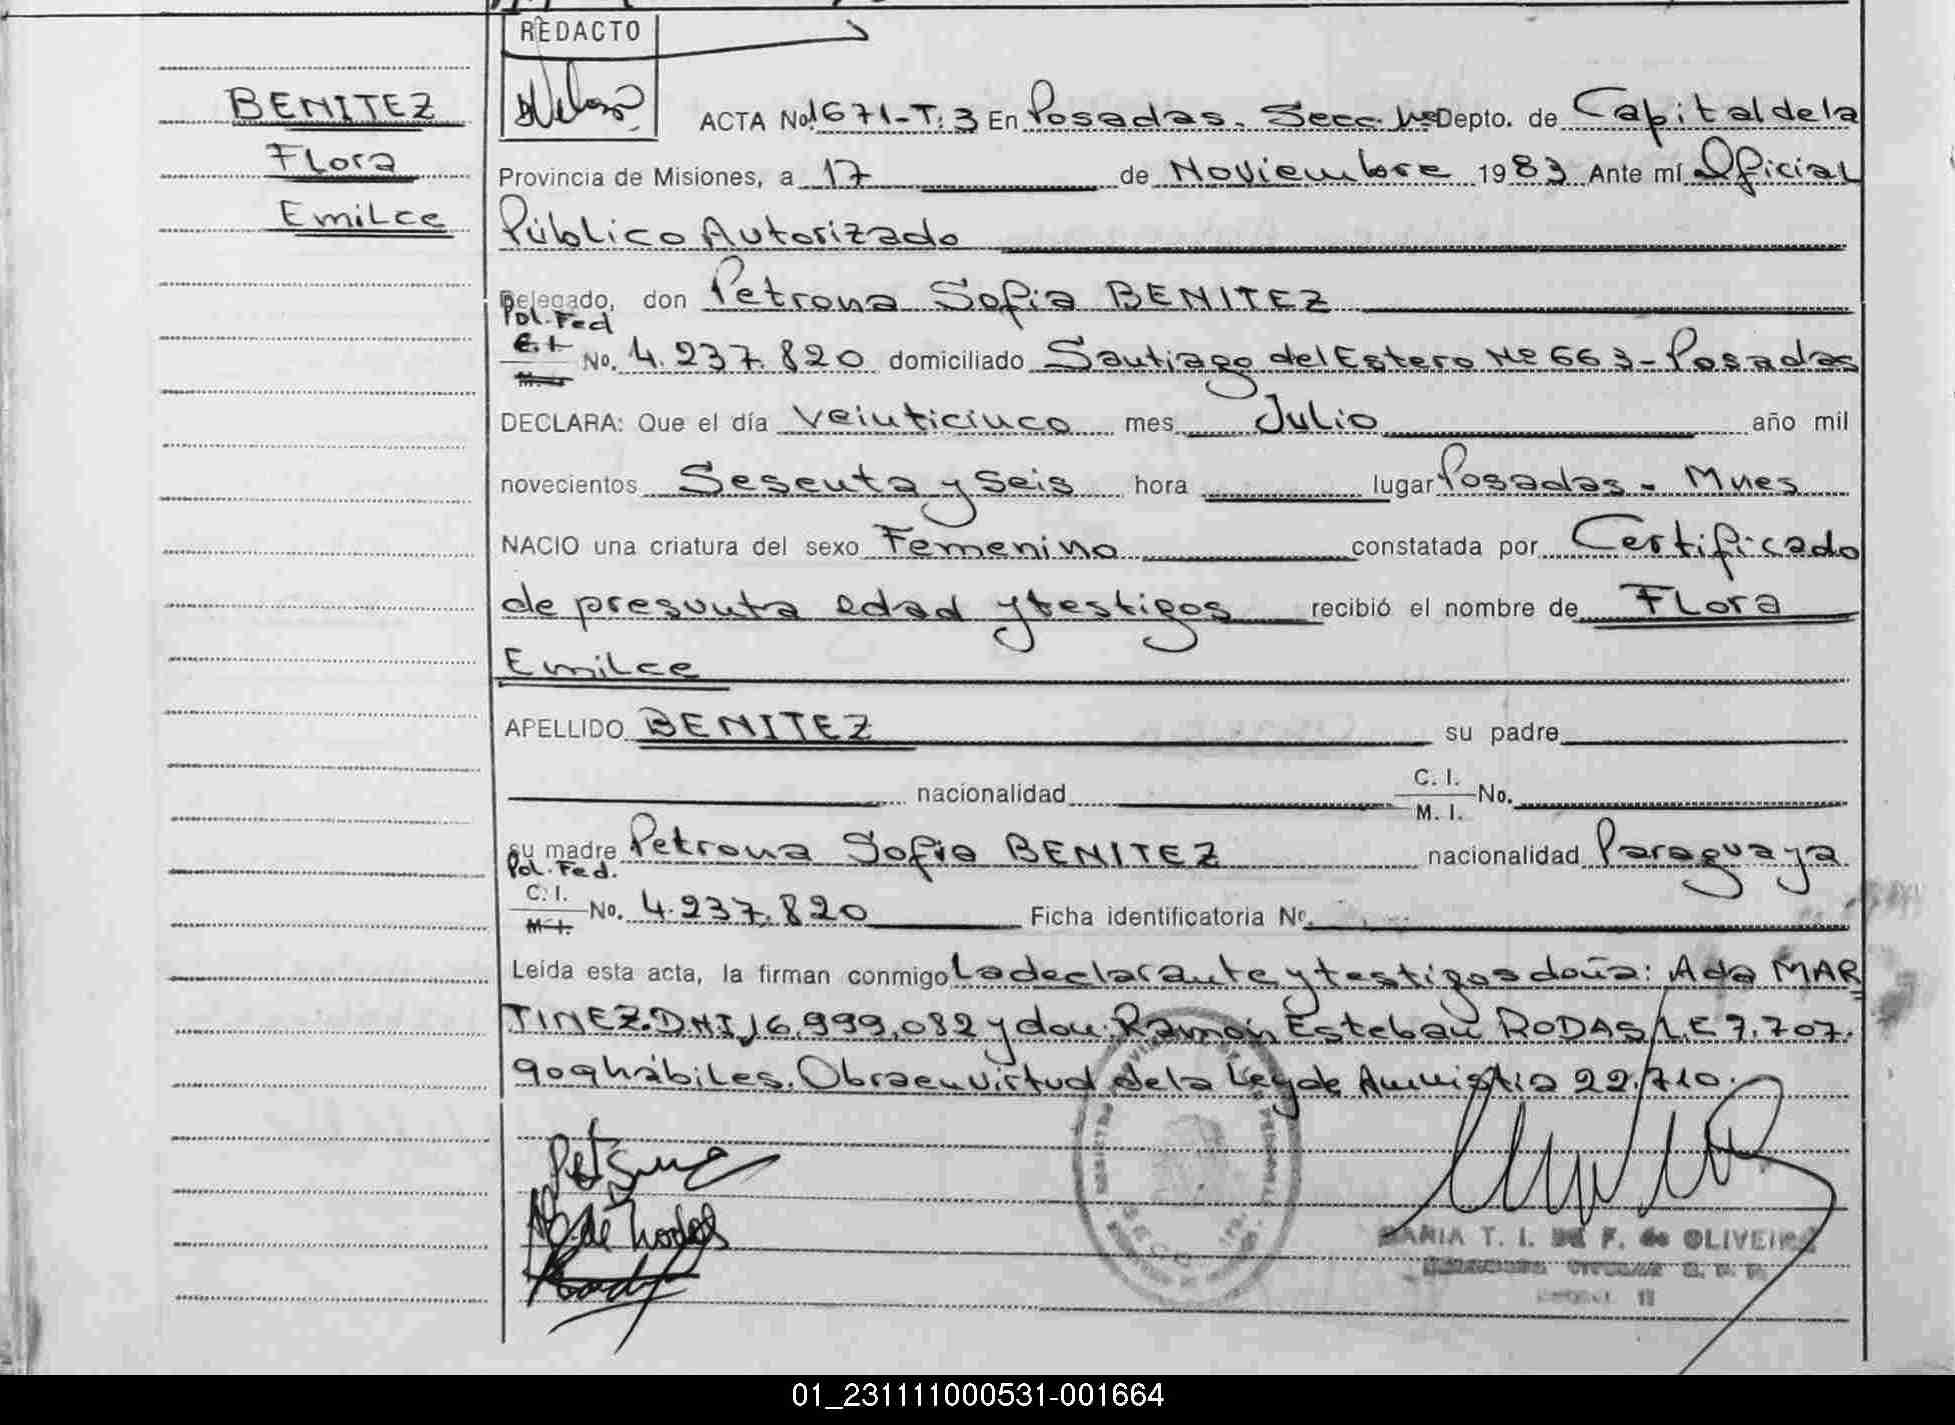 REDACTO
BENITEZ
Flora
Emilce
ACTA No. 1671-T: 3 En Posadas. Secc. 1ª Depto. de Capital de la
Provincia de Misiones, a 17 de Noviembre 1983 Ante mí Oficial
Público Autorizado
Delegado, don Petrona Sofia BENITEZ
Pol. Fed
C.I. No. 4.237.820 domiciliado Santiago del Estero Nº 663 - Posadas
M.I.
DECLARA: Que el día veinticinco mes Julio año mil
novecientos Sesenta y seis hora lugar Posadas - Mnes
NACIO una criatura del sexo Femenino constatada por Certificado
de presunta edad y testigos recibió el nombre de Flora
Emilce
APELLIDO BENITEZ su padre
nacionalidad C. I. No.
M. I.
su madre Petrona Sofia BENITEZ nacionalidad Paraguaya
Pol. Fed.
C. I. No. 4.237.820 Ficha identificatoria Nº.
M.I.
Leída esta acta, la firman conmigo La declarante y testigos doña: Ada MAR
TINEZ. DNI 16.999.082 y don: Ramón Esteban RODAS L.E 7.707.
909 hábiles. Obra en virtud de la Ley de Amnistia 22.710.
MARIA T. I. DE F. de OLIVEIRA
01_231111000531-001664